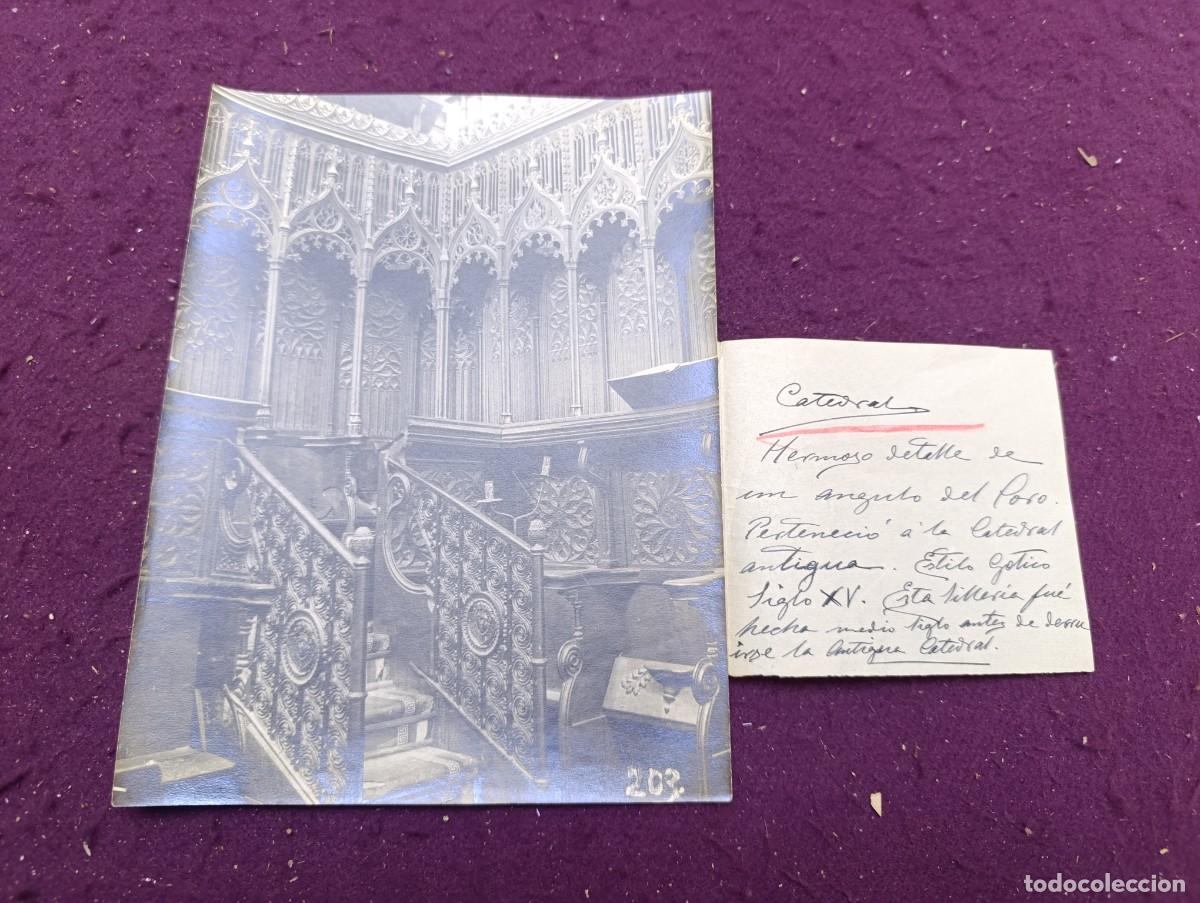 Catedral
Hermoso detalle de
un angulo del Coro.
Perteneció á la Catedral
antigua. Estilo Gotico
Siglo XV. Esta Silleria fué
hecha medio siglo antes de derru
irse la Antigua Catedral.
203.
todocoleccion